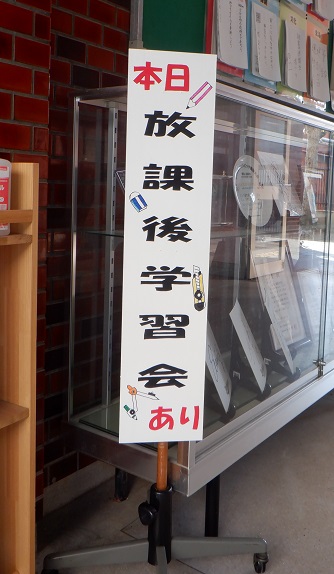 本日
放課後学習会
あり